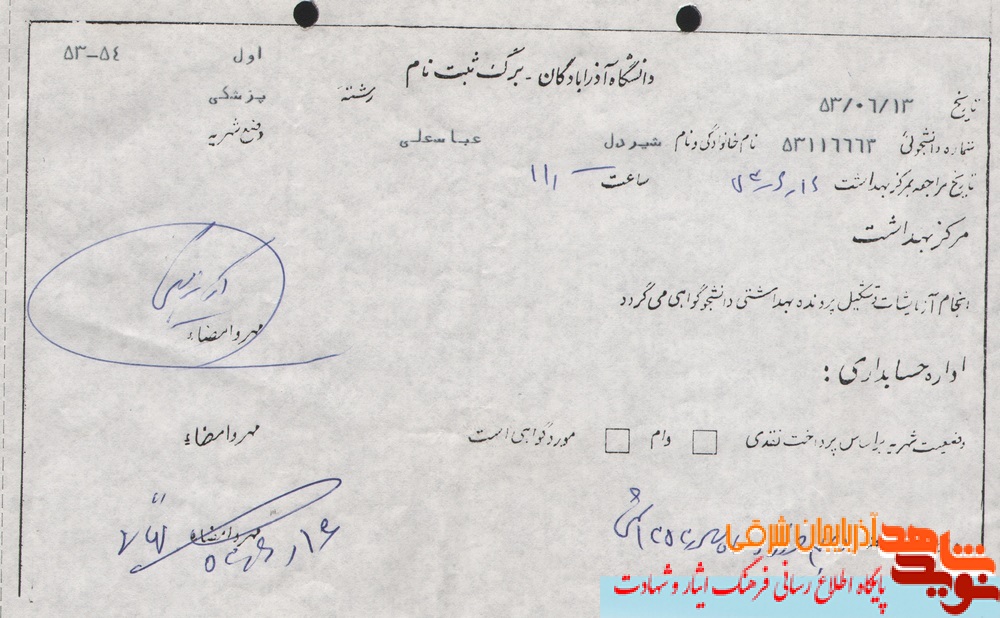 اول ۵۳-۵٤
دانشگاه آذرابادگان - برگ ثبت نام
تاریخ ۵۳/۰٦/۱۳ رشته پزشکی
شماره دانشجوئی ۵۳۱۱٦٦٦۳ نام خانوادگی و نام شیردل عباسعلی دفع شهریه
تاریخ مراجعه بمرکز بهداشت ساعت ۱۱
مرکز بهداشت
انجام آزمایشات و تشکیل پرونده بهداشتی دانشجو گواهی می گردد
مهر و امضاء
اداره حسابداری :
وضعیت شهریه براساس پرداخت نقدی □ وام □ مورد گواهی است
مهر و امضاء
مهر و امضاء
نوید شاهد آذربایجان شرقی
پایگاه اطلاع رسانی فرهنگ ایثار و شهادت